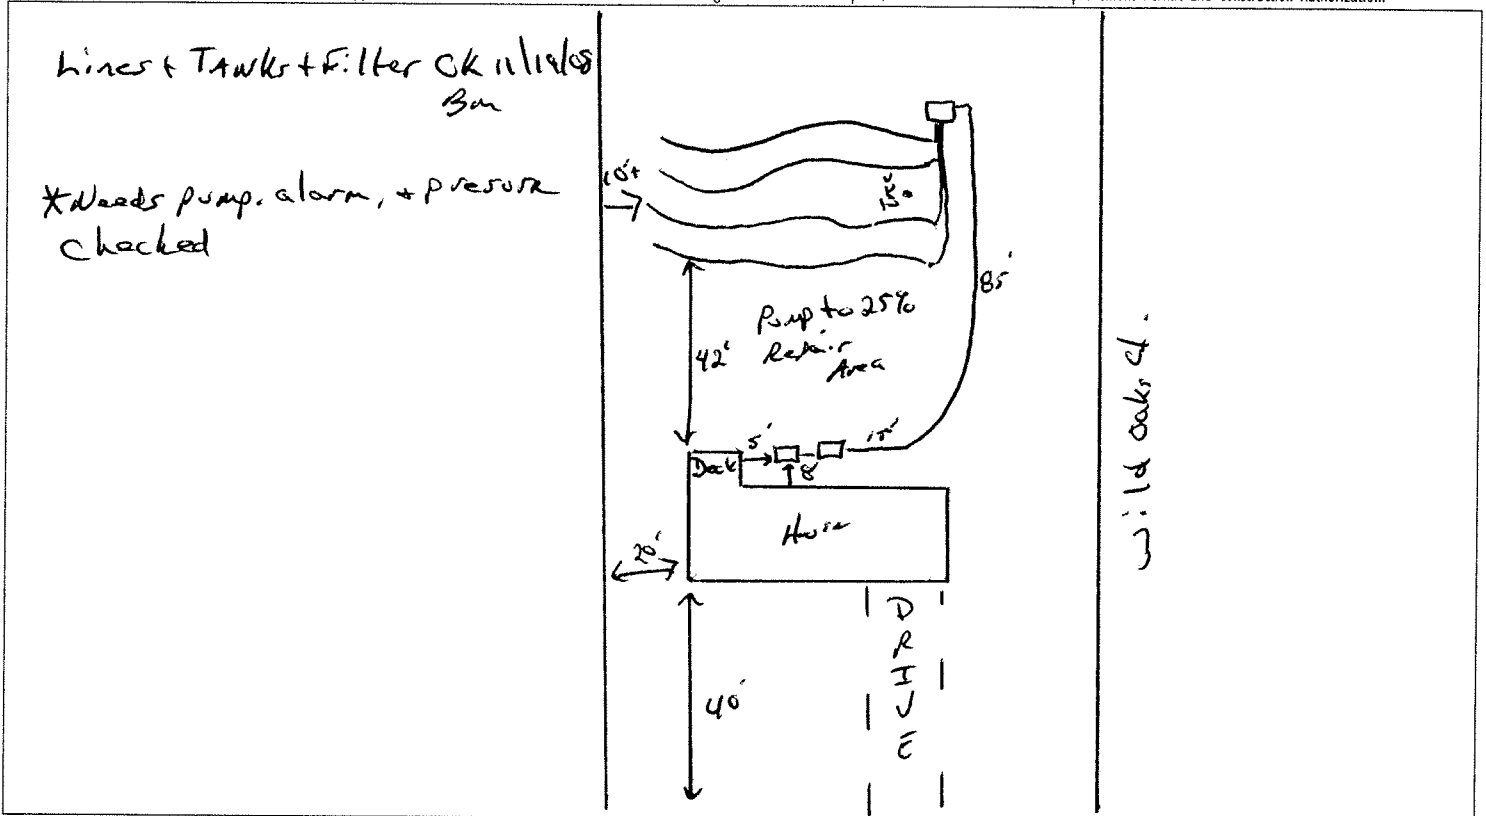 Lines + Tanks + Filter OK 11/19/08
*Needs pump, alarm, + presure
checked
10'+
85'
Pump to 25%
Repair
Area
42'
5'
15'
Deck
8'
House
20'
40'
DRIVE
Wild Oaks Ct.